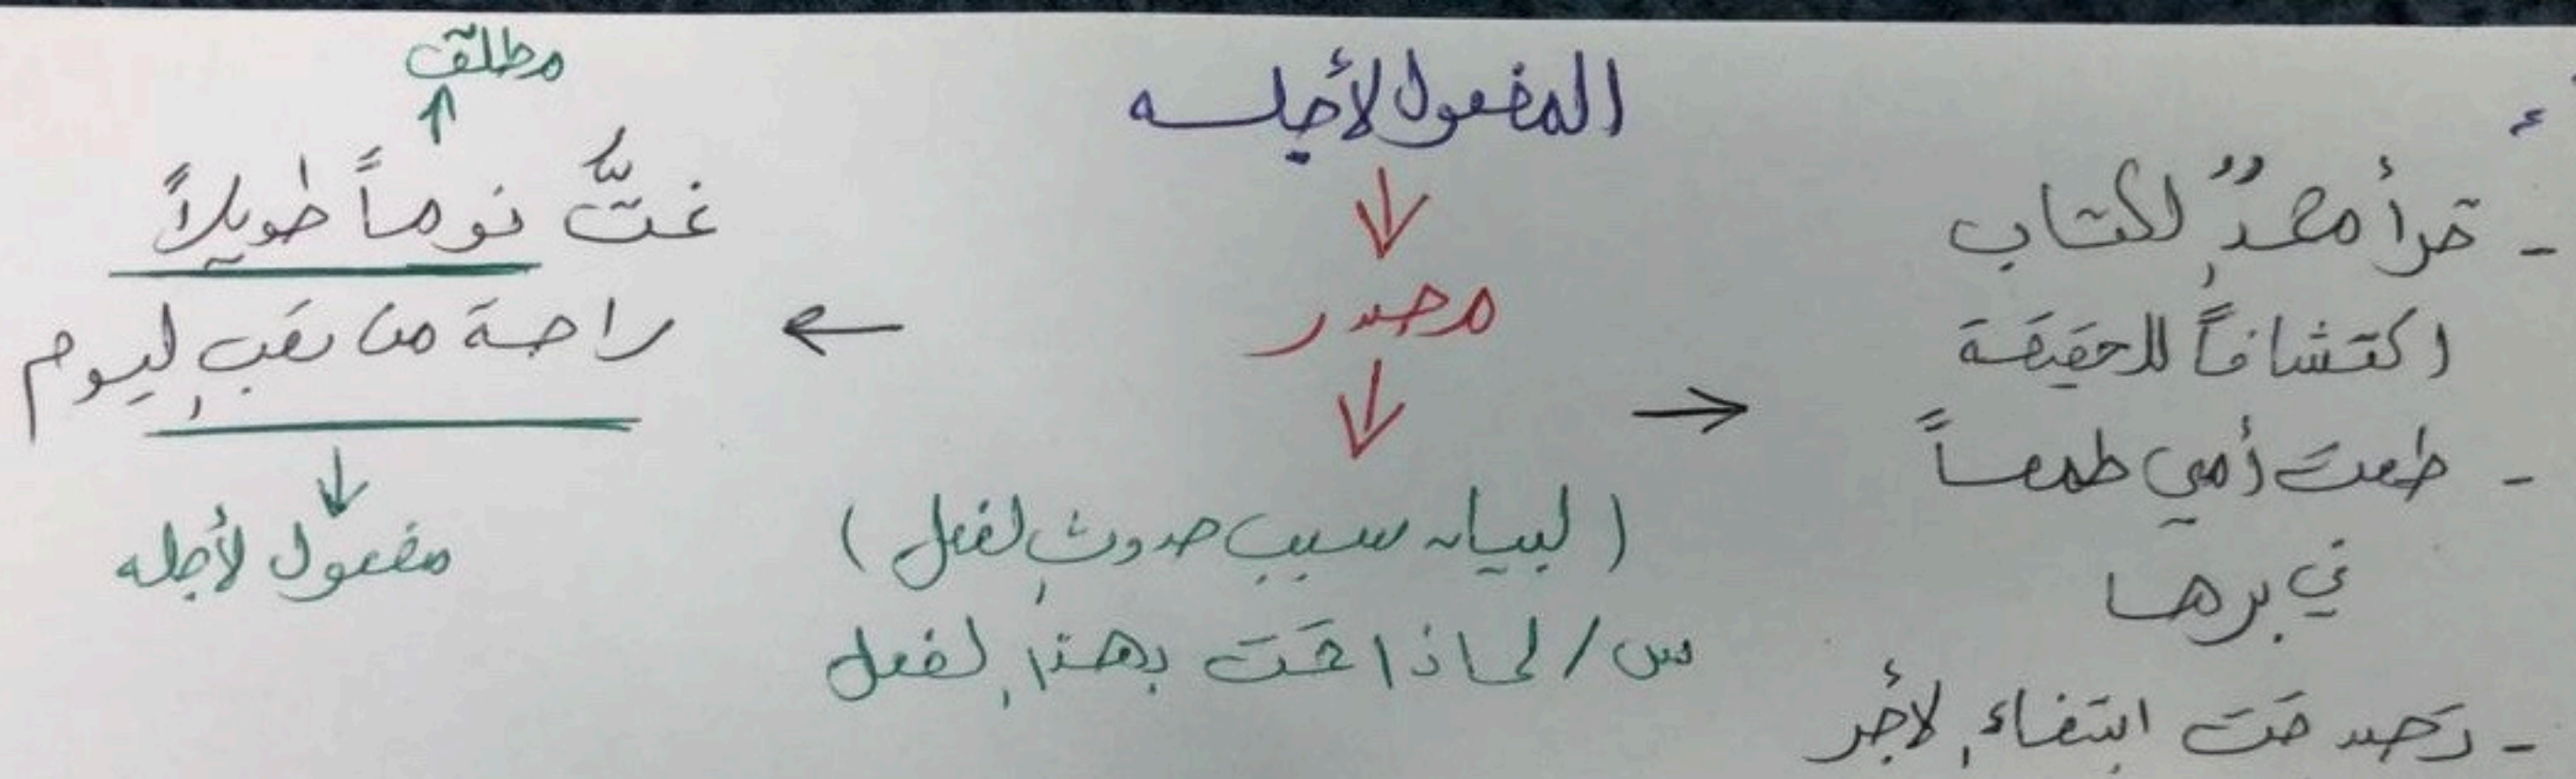 المفعول لأجله
مصدر
(لبيان سبب حدوث الفعل)
س/ لماذا قمت بهذا الفعل
- قرأ محمدٌ الكتاب
اكتشافاً للحقيقة
- طعت أمي طمعاً
في برها
- تصدقت ابتغاء الأجر
مطلق
نمتُّ نوماً طويلاً
راحة من تعب اليوم
مفعول لأجله